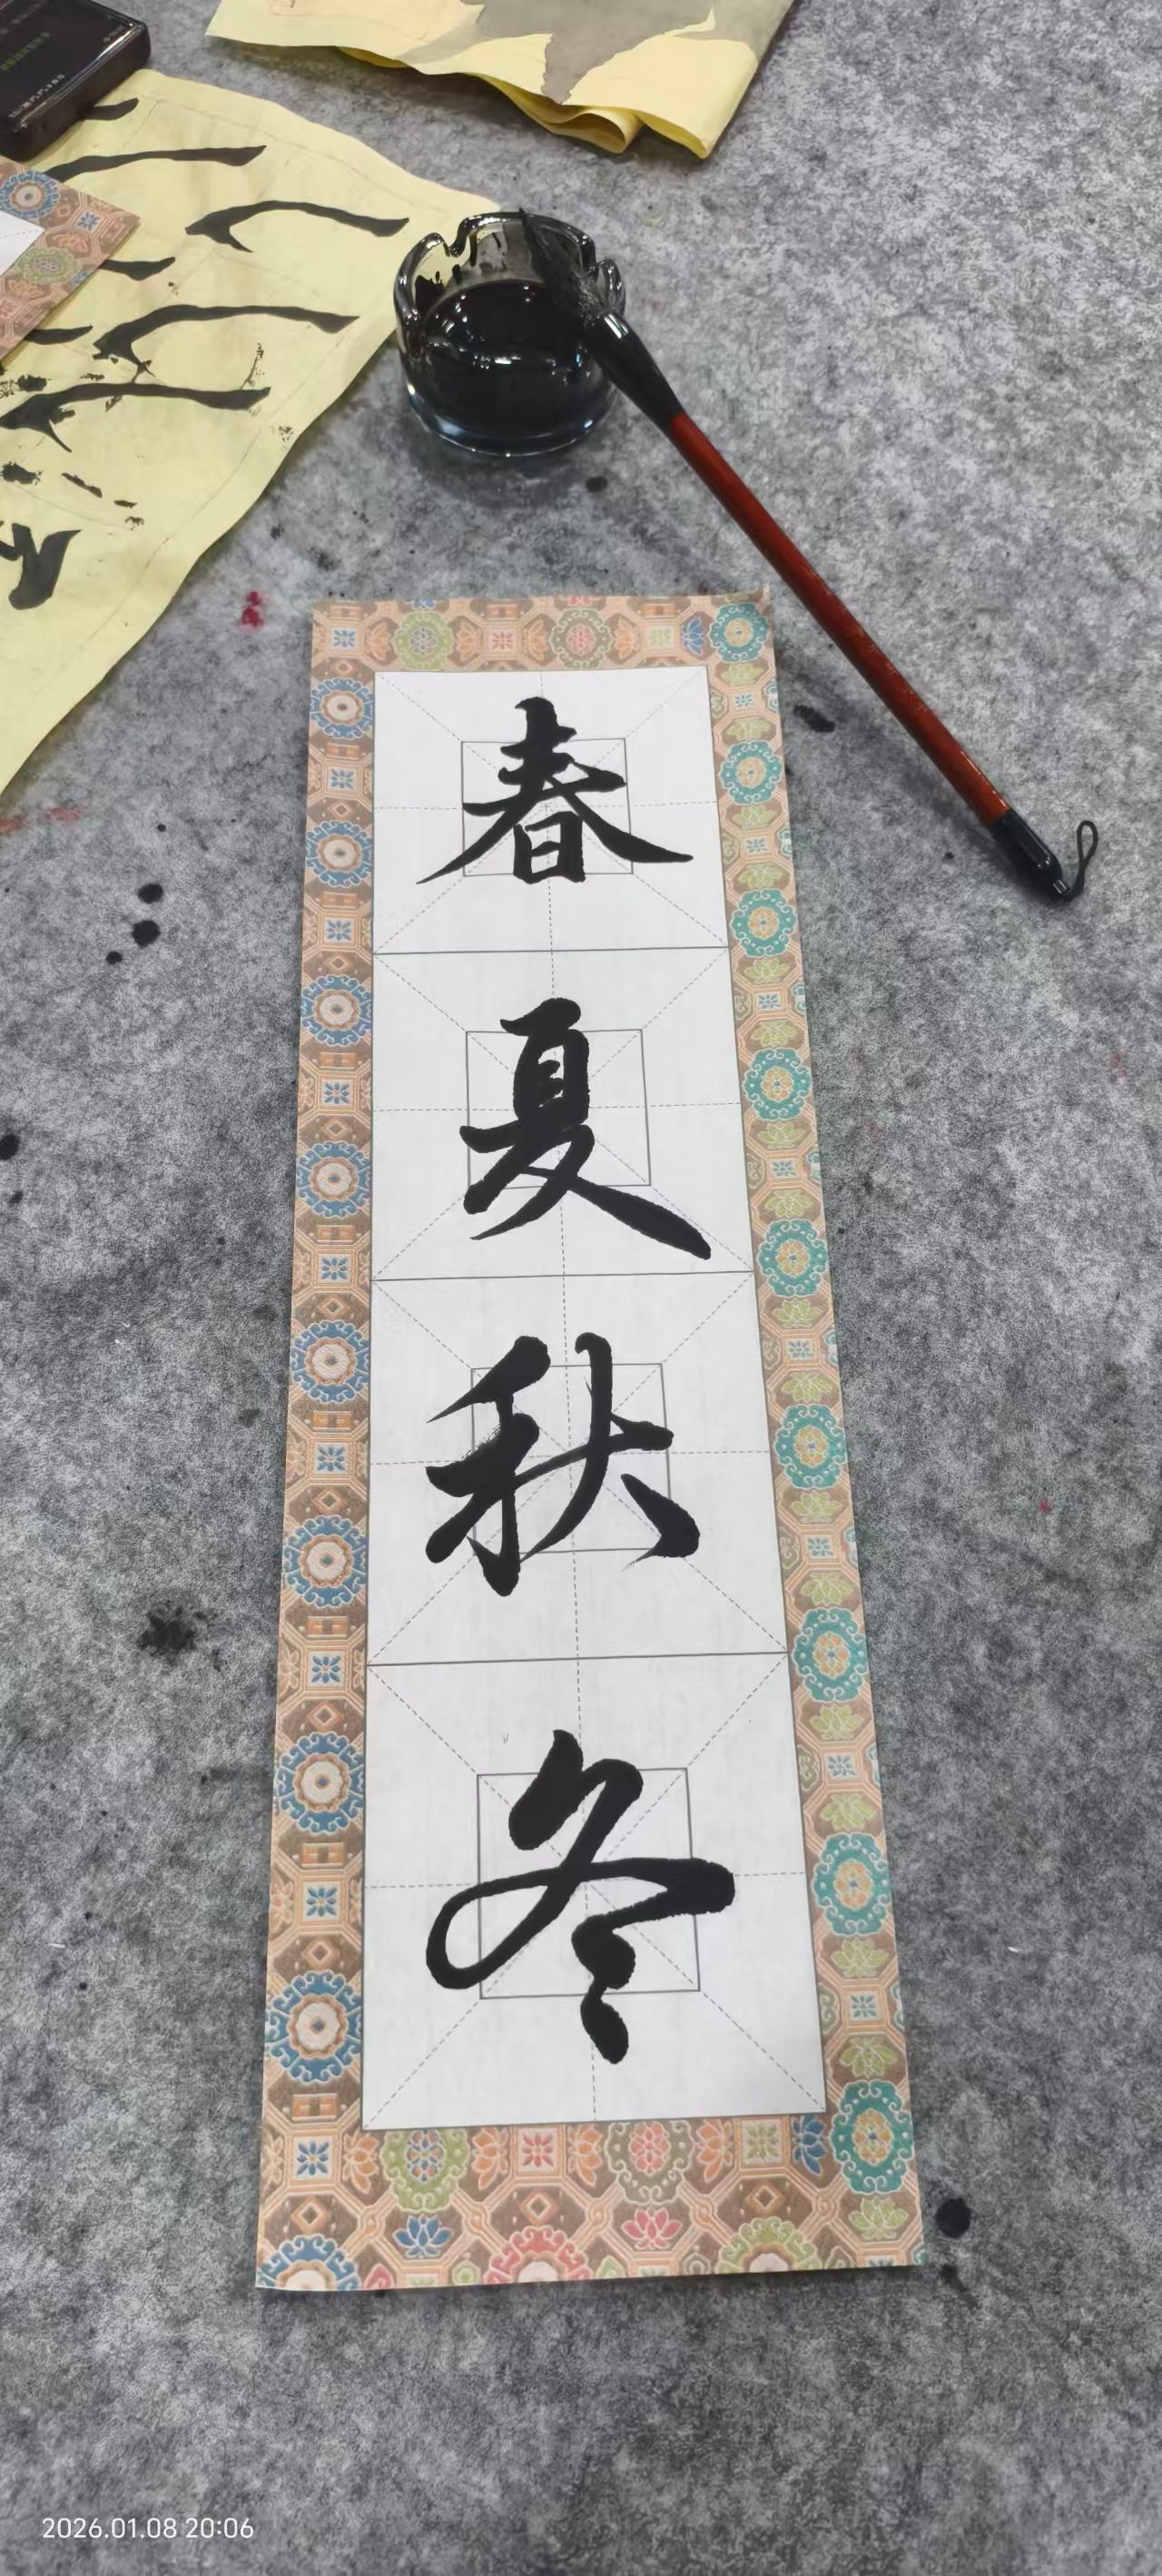 春
夏
秋
冬
2026.01.08 20:06